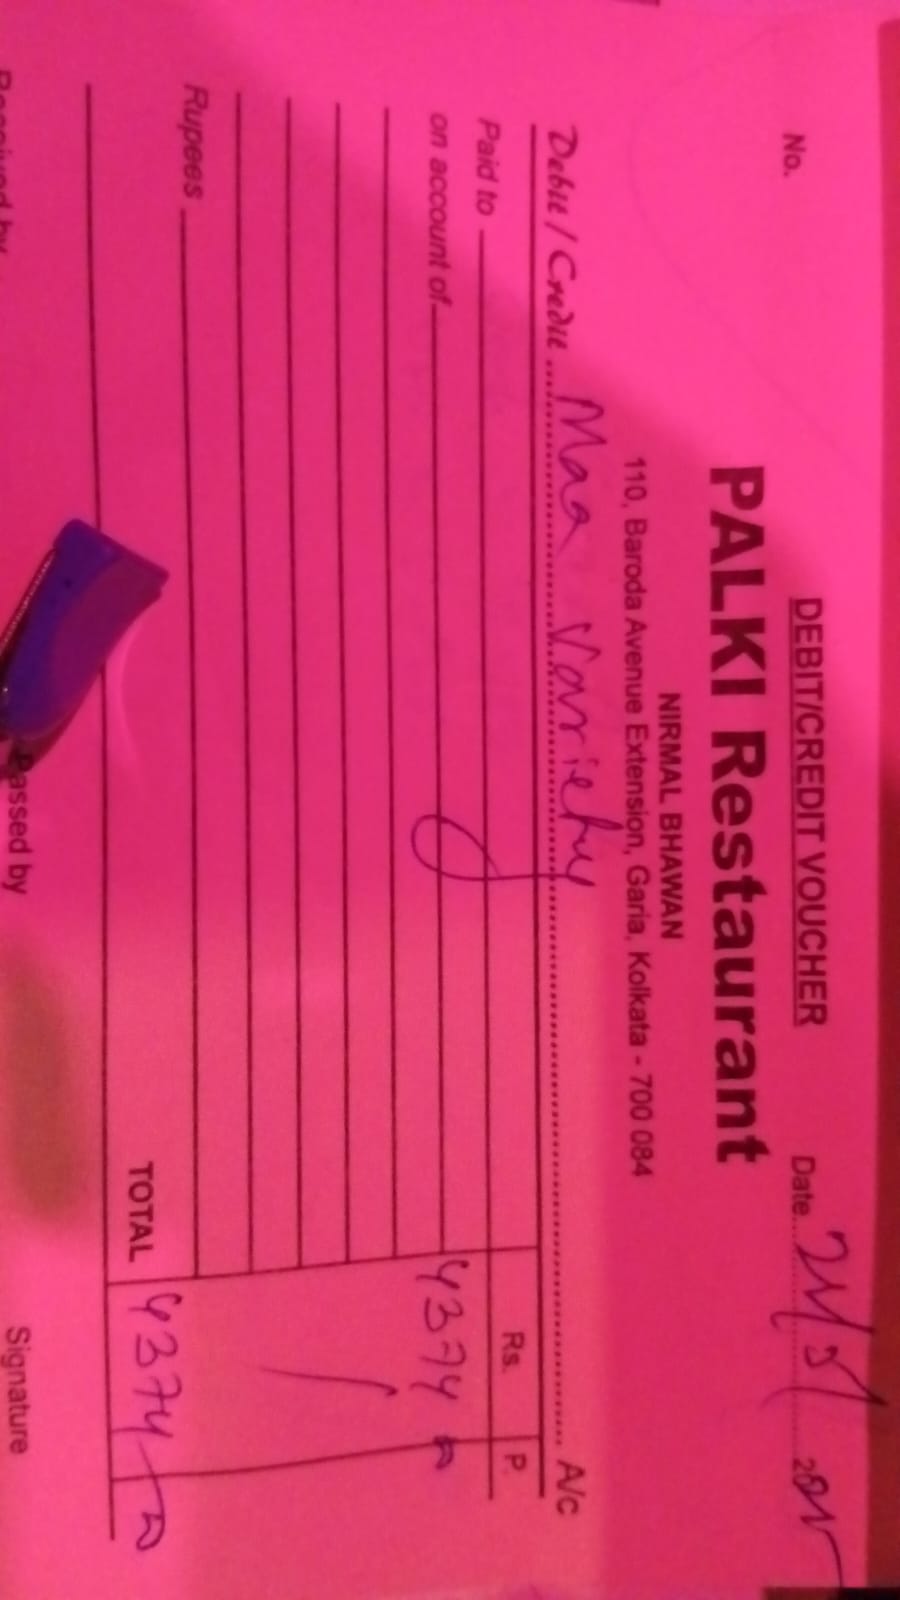 DEBIT/CREDIT VOUCHER
No. Date
PALKI Restaurant
NIRMAL BHAWAN
110, Baroda Avenue Extension, Garia, Kolkata - 700 084
Debit / Credit Maa Variety A/c
Paid to Rs. P.
on account of 4374
Rupees
TOTAL 4374
Received by Passed by Signature